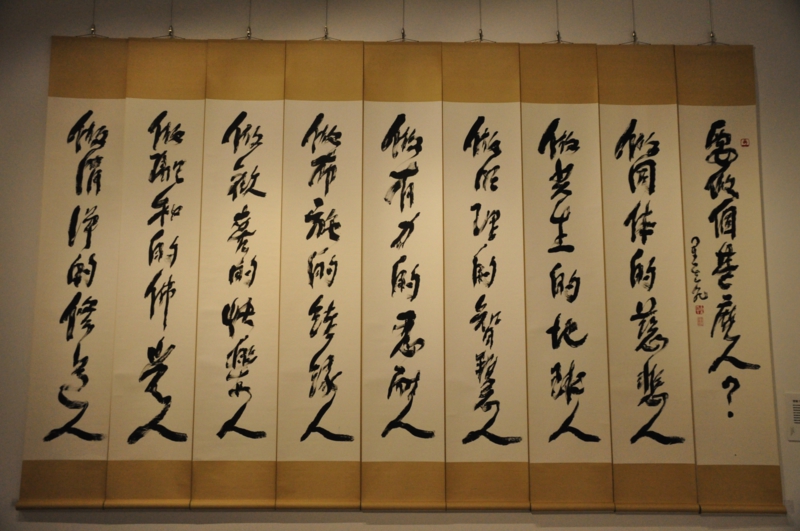 要做個甚麼人？
星云
做同体的慈悲人
做共生的地球人
做明理的智慧人
做有力的忍耐人
做布施的結緣人
做歡喜的快樂人
做融和的佛光人
做清淨的修道人